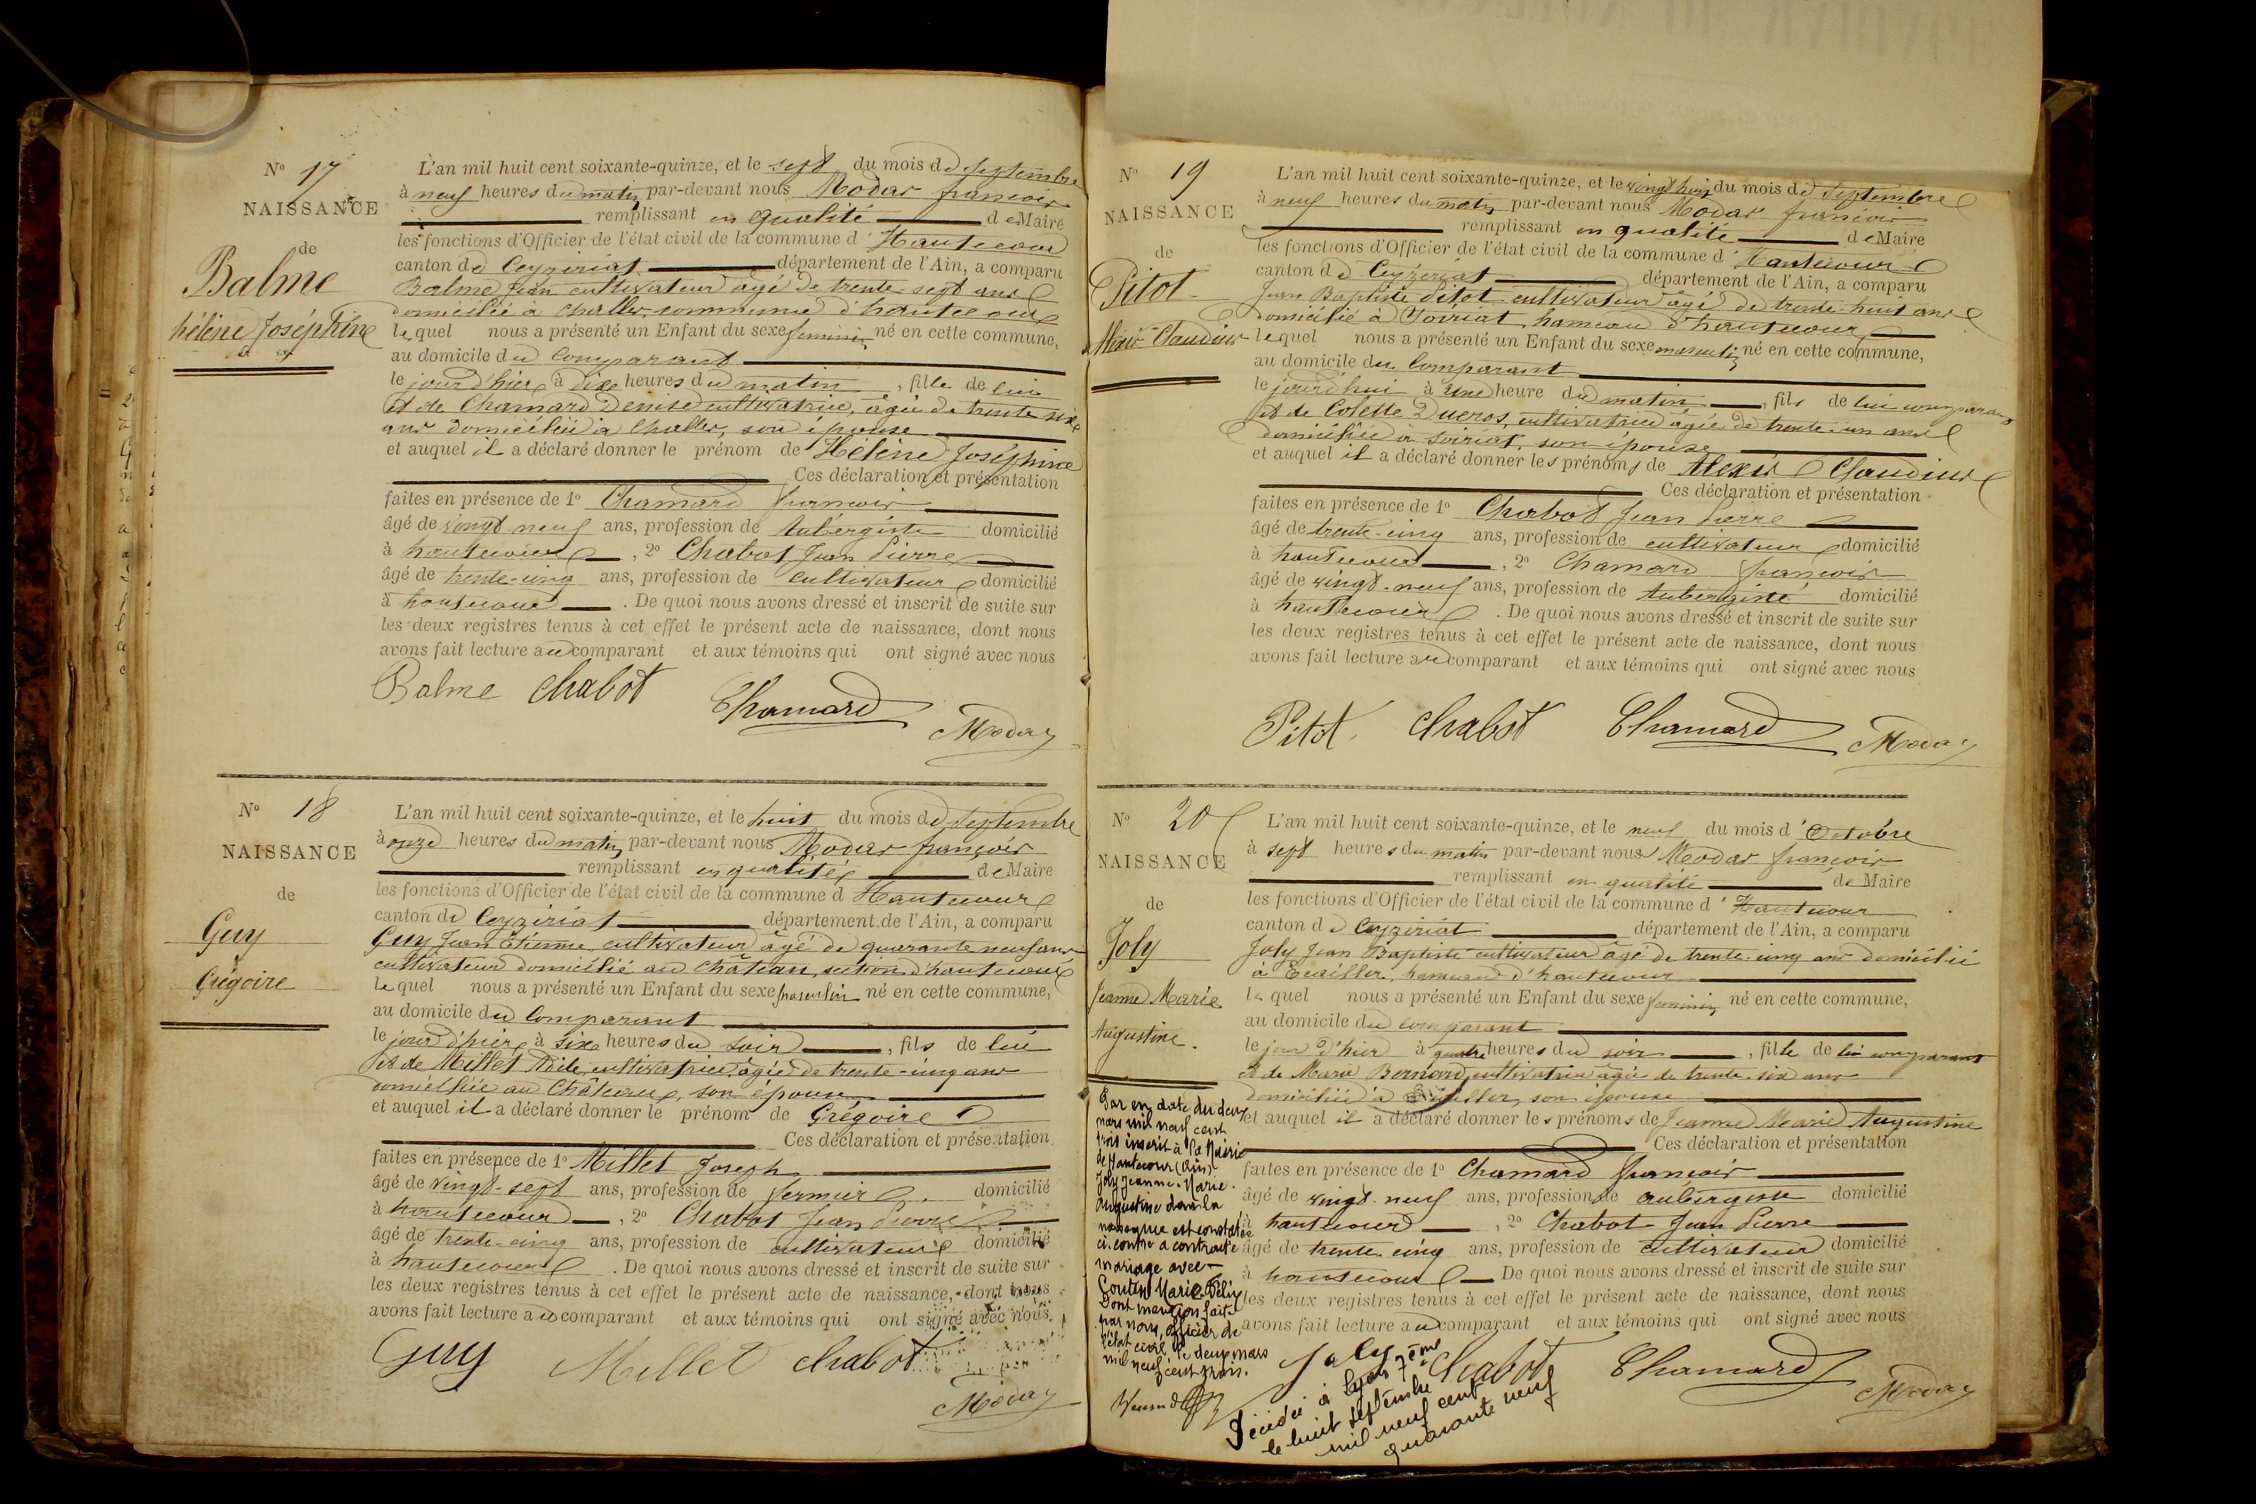 N° 17
NAISSANCE
de
Balme
hélène Joséphine
L'an mil huit cent soixante-quinze, et le sept du mois de Septembre
à neuf heures du matin par-devant nous Modas françois
remplissant en qualité de Maire
les fonctions d'Officier de l'état civil de la commune d'Hautecour
canton de Ceyzériat département de l'Ain, a comparu
Balme Jean cultivateur âgé de trente-sept ans
domicilié à Challes commune d'hautecour
lequel nous a présenté un Enfant du sexe féminin né en cette commune,
au domicile du comparant
le jour d'hier à dix heures du matin, fille de lui
et de Chamard Denise cultivatrice, âgée de trente six
ans domiciliée à Challes, son épouse
et auquel il a déclaré donner le prénom de Hélène Joséphine
Ces déclaration et présentation
faites en présence de 1° Chamard françois
âgé de vingt neuf ans, profession de Aubergiste domicilié
à hautecour, 2° Chabot Jean Pierre
âgé de trente-cinq ans, profession de cultivateur domicilié
à hautecour. De quoi nous avons dressé et inscrit de suite sur
les deux registres tenus à cet effet le présent acte de naissance, dont nous
avons fait lecture au comparant et aux témoins qui ont signé avec nous
Balme chabot Chamard Modas
N° 18
NAISSANCE
de
Guy
Grégoire
L'an mil huit cent soixante-quinze, et le huit du mois de Septembre
à onze heures du matin par-devant nous Modas françois
remplissant en qualité de Maire
les fonctions d'Officier de l'état civil de la commune d Hautecour
canton de Ceyzériat département de l'Ain, a comparu
Guy Jean Etienne cultivateur âgé de quarante neuf ans
cultivateur domicilié au Château, section d'hautecour
lequel nous a présenté un Enfant du sexe masculin né en cette commune,
au domicile du comparant
le jour d'hier à six heures du soir, fils de lui
et de Millet Adile, cultivatrice, âgée de trente-cinq ans
domiciliée au Château, son épouse
et auquel il a déclaré donner le prénom de Grégoire
Ces déclaration et présentation
faites en présence de 1° Millet Joseph
âgé de vingt-sept ans, profession de fermier domicilié
à hautecour, 2° Chabot Jean Pierre
âgé de trente-cinq ans, profession de cultivateur domicilié
à hautecour. De quoi nous avons dressé et inscrit de suite sur
les deux registres tenus à cet effet le présent acte de naissance, dont nous
avons fait lecture au comparant et aux témoins qui ont signé avec nous.
Guy Millet chabot
Modas
N° 19
NAISSANCE
de
Pitot
Alexis-Claudius
L'an mil huit cent soixante-quinze, et le vingt huit du mois de Septembre
à neuf heures du matin par-devant nous Modas françois
remplissant en qualité de Maire
les fonctions d'Officier de l'état civil de la commune d'Hautecour
canton de Ceyzériat département de l'Ain, a comparu
Jean Baptiste Pitot cultivateur âgé de trente-huit ans
domicilié à Soiriat hameau d'hautecour
lequel nous a présenté un Enfant du sexe masculin né en cette commune,
au domicile du comparant
le jourd'hui à une heure du matin, fils de lui comparant
et de Colette Ducros, cultivatrice âgée de trente-un ans
domiciliée à Soiriat, son épouse
et auquel il a déclaré donner les prénoms de Alexis Claudius
Ces déclaration et présentation
faites en présence de 1° Chabot Jean Pierre
âgé de trente-cinq ans, profession de cultivateur domicilié
à hautecour, 2° Chamard françois
âgé de vingt-neuf ans, profession de Aubergiste domicilié
à hautecour. De quoi nous avons dressé et inscrit de suite sur
les deux registres tenus à cet effet le présent acte de naissance, dont nous
avons fait lecture au comparant et aux témoins qui ont signé avec nous
Pitot. chabot Chamard Modas
N° 20
NAISSANCE
de
Joly
Jeanne Marie
Augustine.
L'an mil huit cent soixante-quinze, et le neuf du mois d'Octobre
à sept heures du matin par-devant nous Modas françois
remplissant en qualité de Maire
les fonctions d'Officier de l'état civil de la commune d'Hautecour
canton de Ceyzériat département de l'Ain, a comparu
Joly Jean Baptiste cultivateur âgé de trente-cinq ans domicilié
à hameau d'hautecour
lequel nous a présenté un Enfant du sexe féminin né en cette commune,
au domicile du comparant
le jour d'hier à quatre heures du soir, fille de lui comparant
et de Marie Bernard, cultivatrice âgée de trente-six ans
domiciliée à son épouse
et auquel il a déclaré donner les prénoms de Jeanne Marie Augustine
Ces déclaration et présentation
faites en présence de 1° Chamard françois
âgé de vingt-neuf ans, profession de aubergiste domicilié
à hautecour, 2° Chabot Jean Pierre
âgé de trente-cinq ans, profession de cultivateur domicilié
à hautecour De quoi nous avons dressé et inscrit de suite sur
les deux registres tenus à cet effet le présent acte de naissance, dont nous
avons fait lecture au comparant et aux témoins qui ont signé avec nous
Joly Chabot Chamard Modas
Par en date du deux
mars mil neuf cent
trois inscrit à la Mairie
de Hautecour (Ain)
Joly Jeanne-Marie-
Augustine dont la
naissance est constatée
ci-contre a contracté
mariage avec
Marie Félix
Dont mention faite
par nous, officier de
l'état civil le deux mars
mil neuf cent trois.
Décédée à Lyon 7ème
le huit septembre
mil neuf cent
quarante neuf